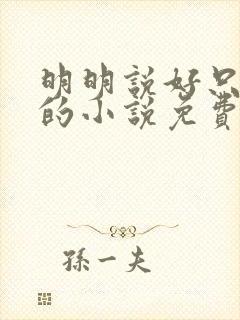 明明說好只
的小說免費
孫一夫